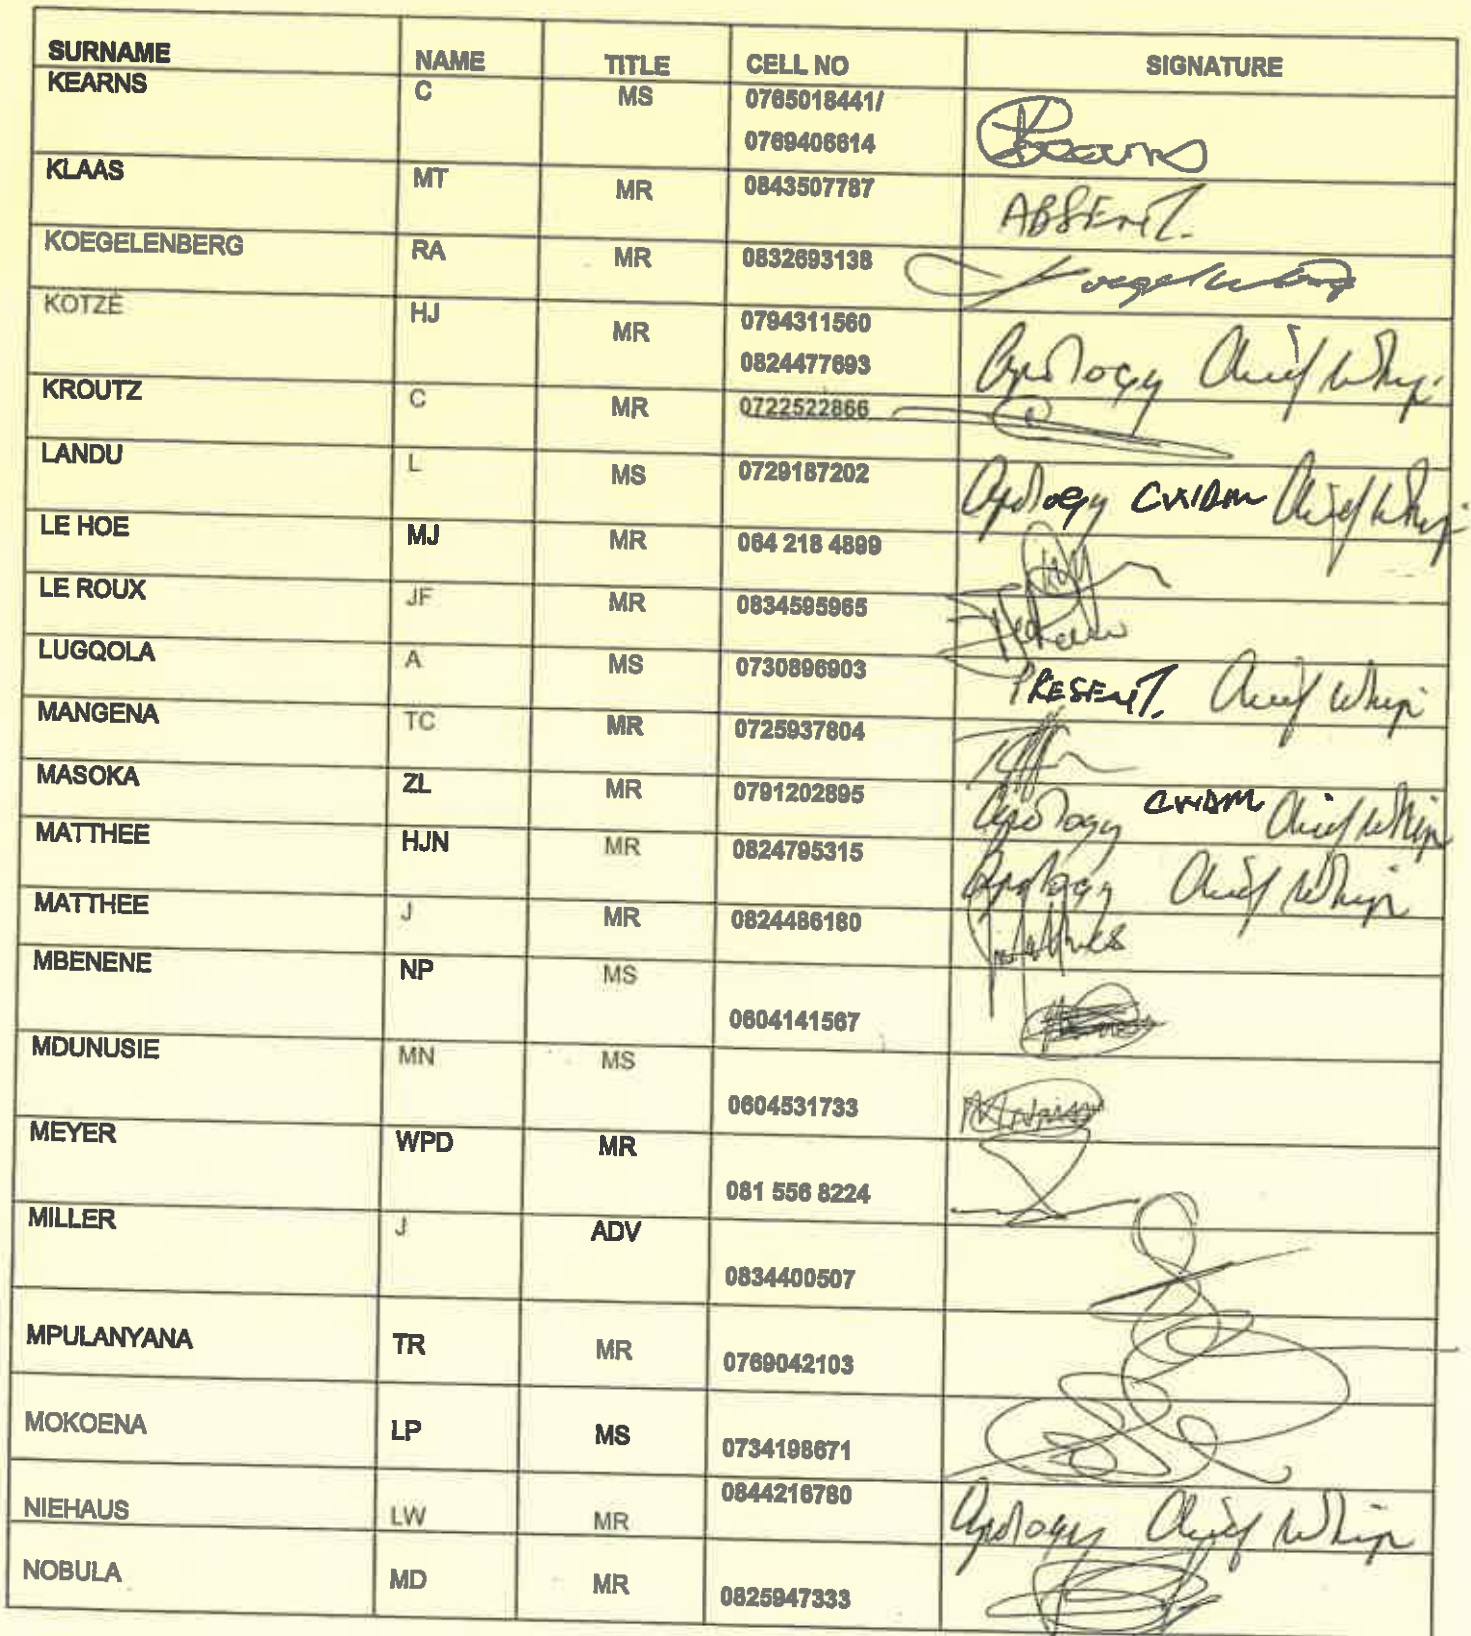 SURNAME NAME TITLE CELL NO SIGNATURE
KEARNS C MS 0765018441/
0769406614 Kearns
KLAAS MT MR 0843507787 ABSENT.
KOEGELENBERG RA MR 0832693138 Koegelenberg
KOTZÉ HJ MR 0794311560
0824477693 Apology Chief Whip
KROUTZ C MR 0722522866
LANDU L MS 0729187202 Apology CWDM Chief Whip
LE HOE MJ MR 064 218 4899
LE ROUX JF MR 0834595965
LUGQOLA A MS 0730896903 PRESENT. Chief Whip
MANGENA TC MR 0725937804
MASOKA ZL MR 0791202895 Apology CWDM Chief Whip
MATTHEE HJN MR 0824795315 Apology Chief Whip
MATTHEE J MR 0824486180
MBENENE NP MS
0604141567
MDUNUSIE MN MS
0604531733
MEYER WPD MR
081 556 8224
MILLER J ADV
0834400507
MPULANYANA TR MR 0769042103
MOKOENA LP MS 0734198671
NIEHAUS LW MR 0844216780 Apology Chief Whip
NOBULA MD MR 0825947333